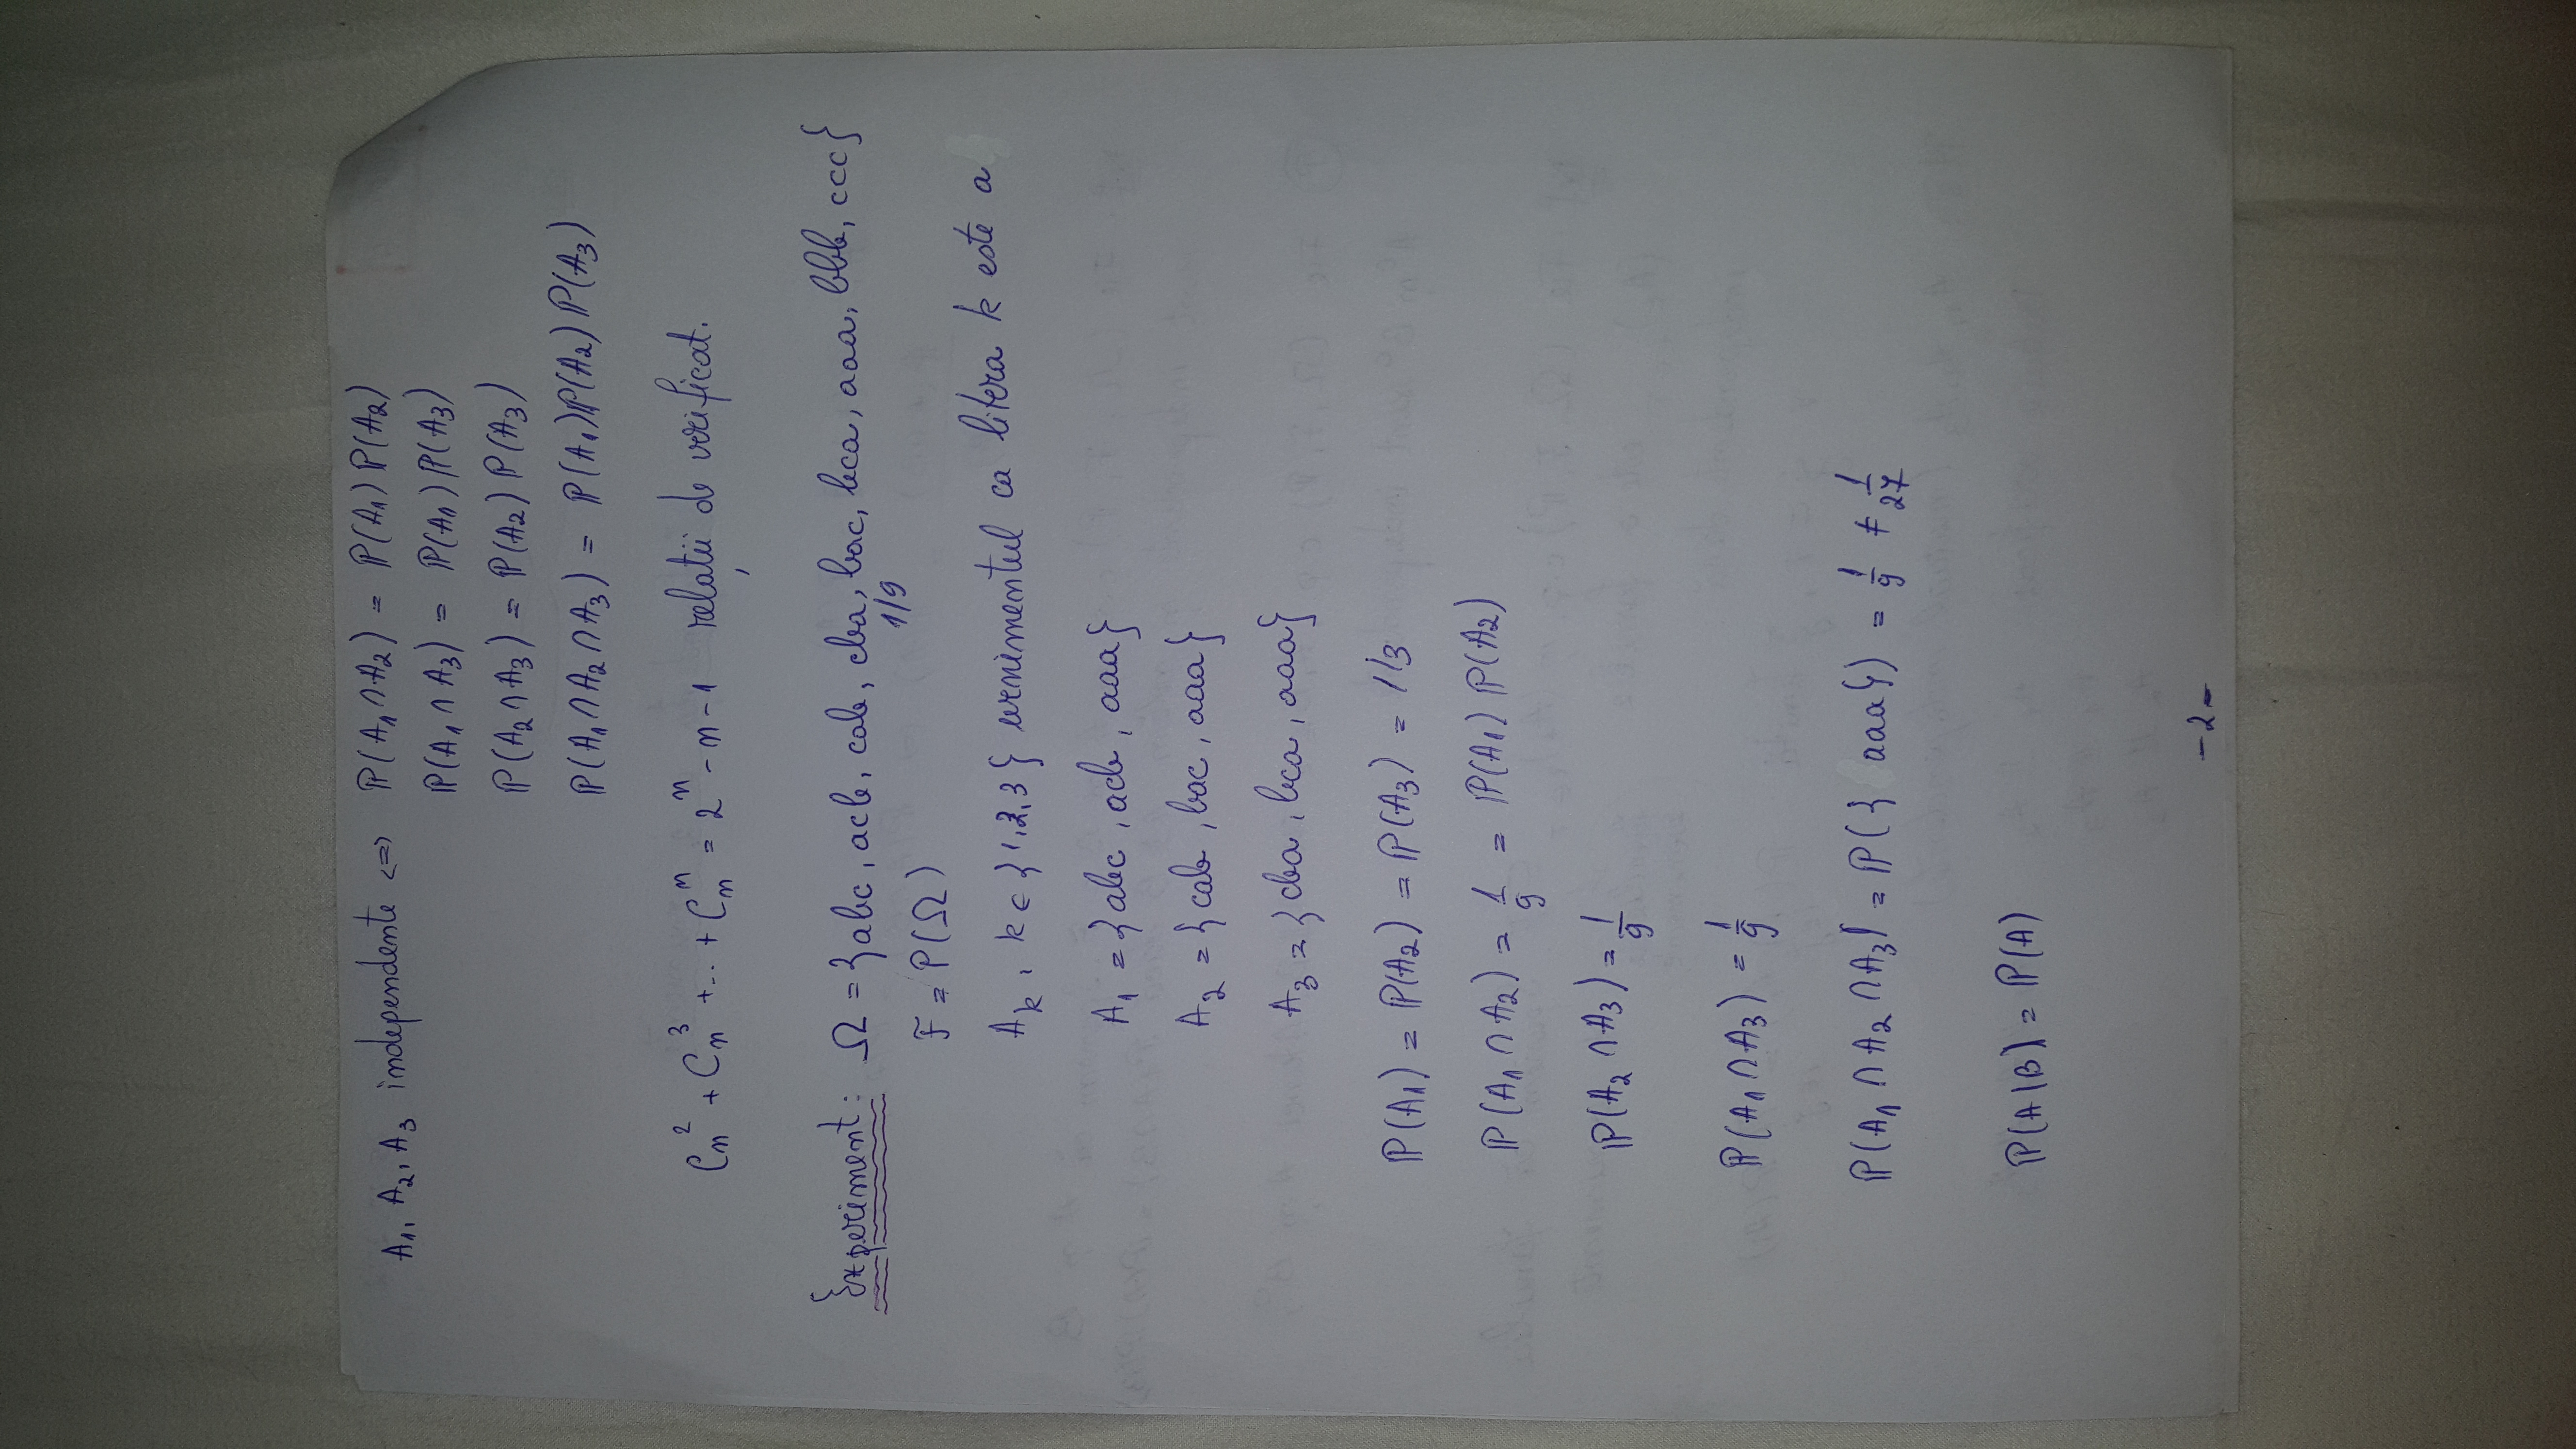 A₁, A₂, A₃ independente <=> ℙ(A₁∩A₂) = ℙ(A₁)ℙ(A₂)
ℙ(A₁∩A₃) = ℙ(A₁)ℙ(A₃)
ℙ(A₂∩A₃) = ℙ(A₂)ℙ(A₃)
ℙ(A₁∩A₂∩A₃) = ℙ(A₁)ℙ(A₂)ℙ(A₃)
Cₙ² + Cₙ³ + ... + Cₙⁿ = 2ⁿ - n - 1 relații de verificat.
Experiment: Ω = {abc, acb, cab, cba, bac, bca, aaa, bbb, ccc}
1/9
F = P(Ω)
Aₖ, k ∈ {1,2,3} evenimentul ca litera k este a
A₁ = {abc, acb, aaa}
A₂ = {cab, bac, aaa}
A₃ = {cba, bca, aaa}
ℙ(A₁) = ℙ(A₂) = ℙ(A₃) = 1/3
ℙ(A₁∩A₂) = 1/9 = ℙ(A₁)ℙ(A₂)
ℙ(A₂∩A₃) = 1/9
ℙ(A₁∩A₃) = 1/9
ℙ(A₁∩A₂∩A₃) = ℙ({aaa}) = 1/9 ≠ 1/27
ℙ(A|B) = ℙ(A)
-2-